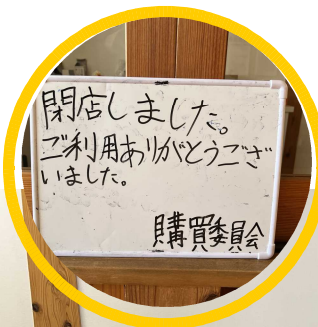 閉店しました。
ご利用ありがとうござ
いました。
購買委員会